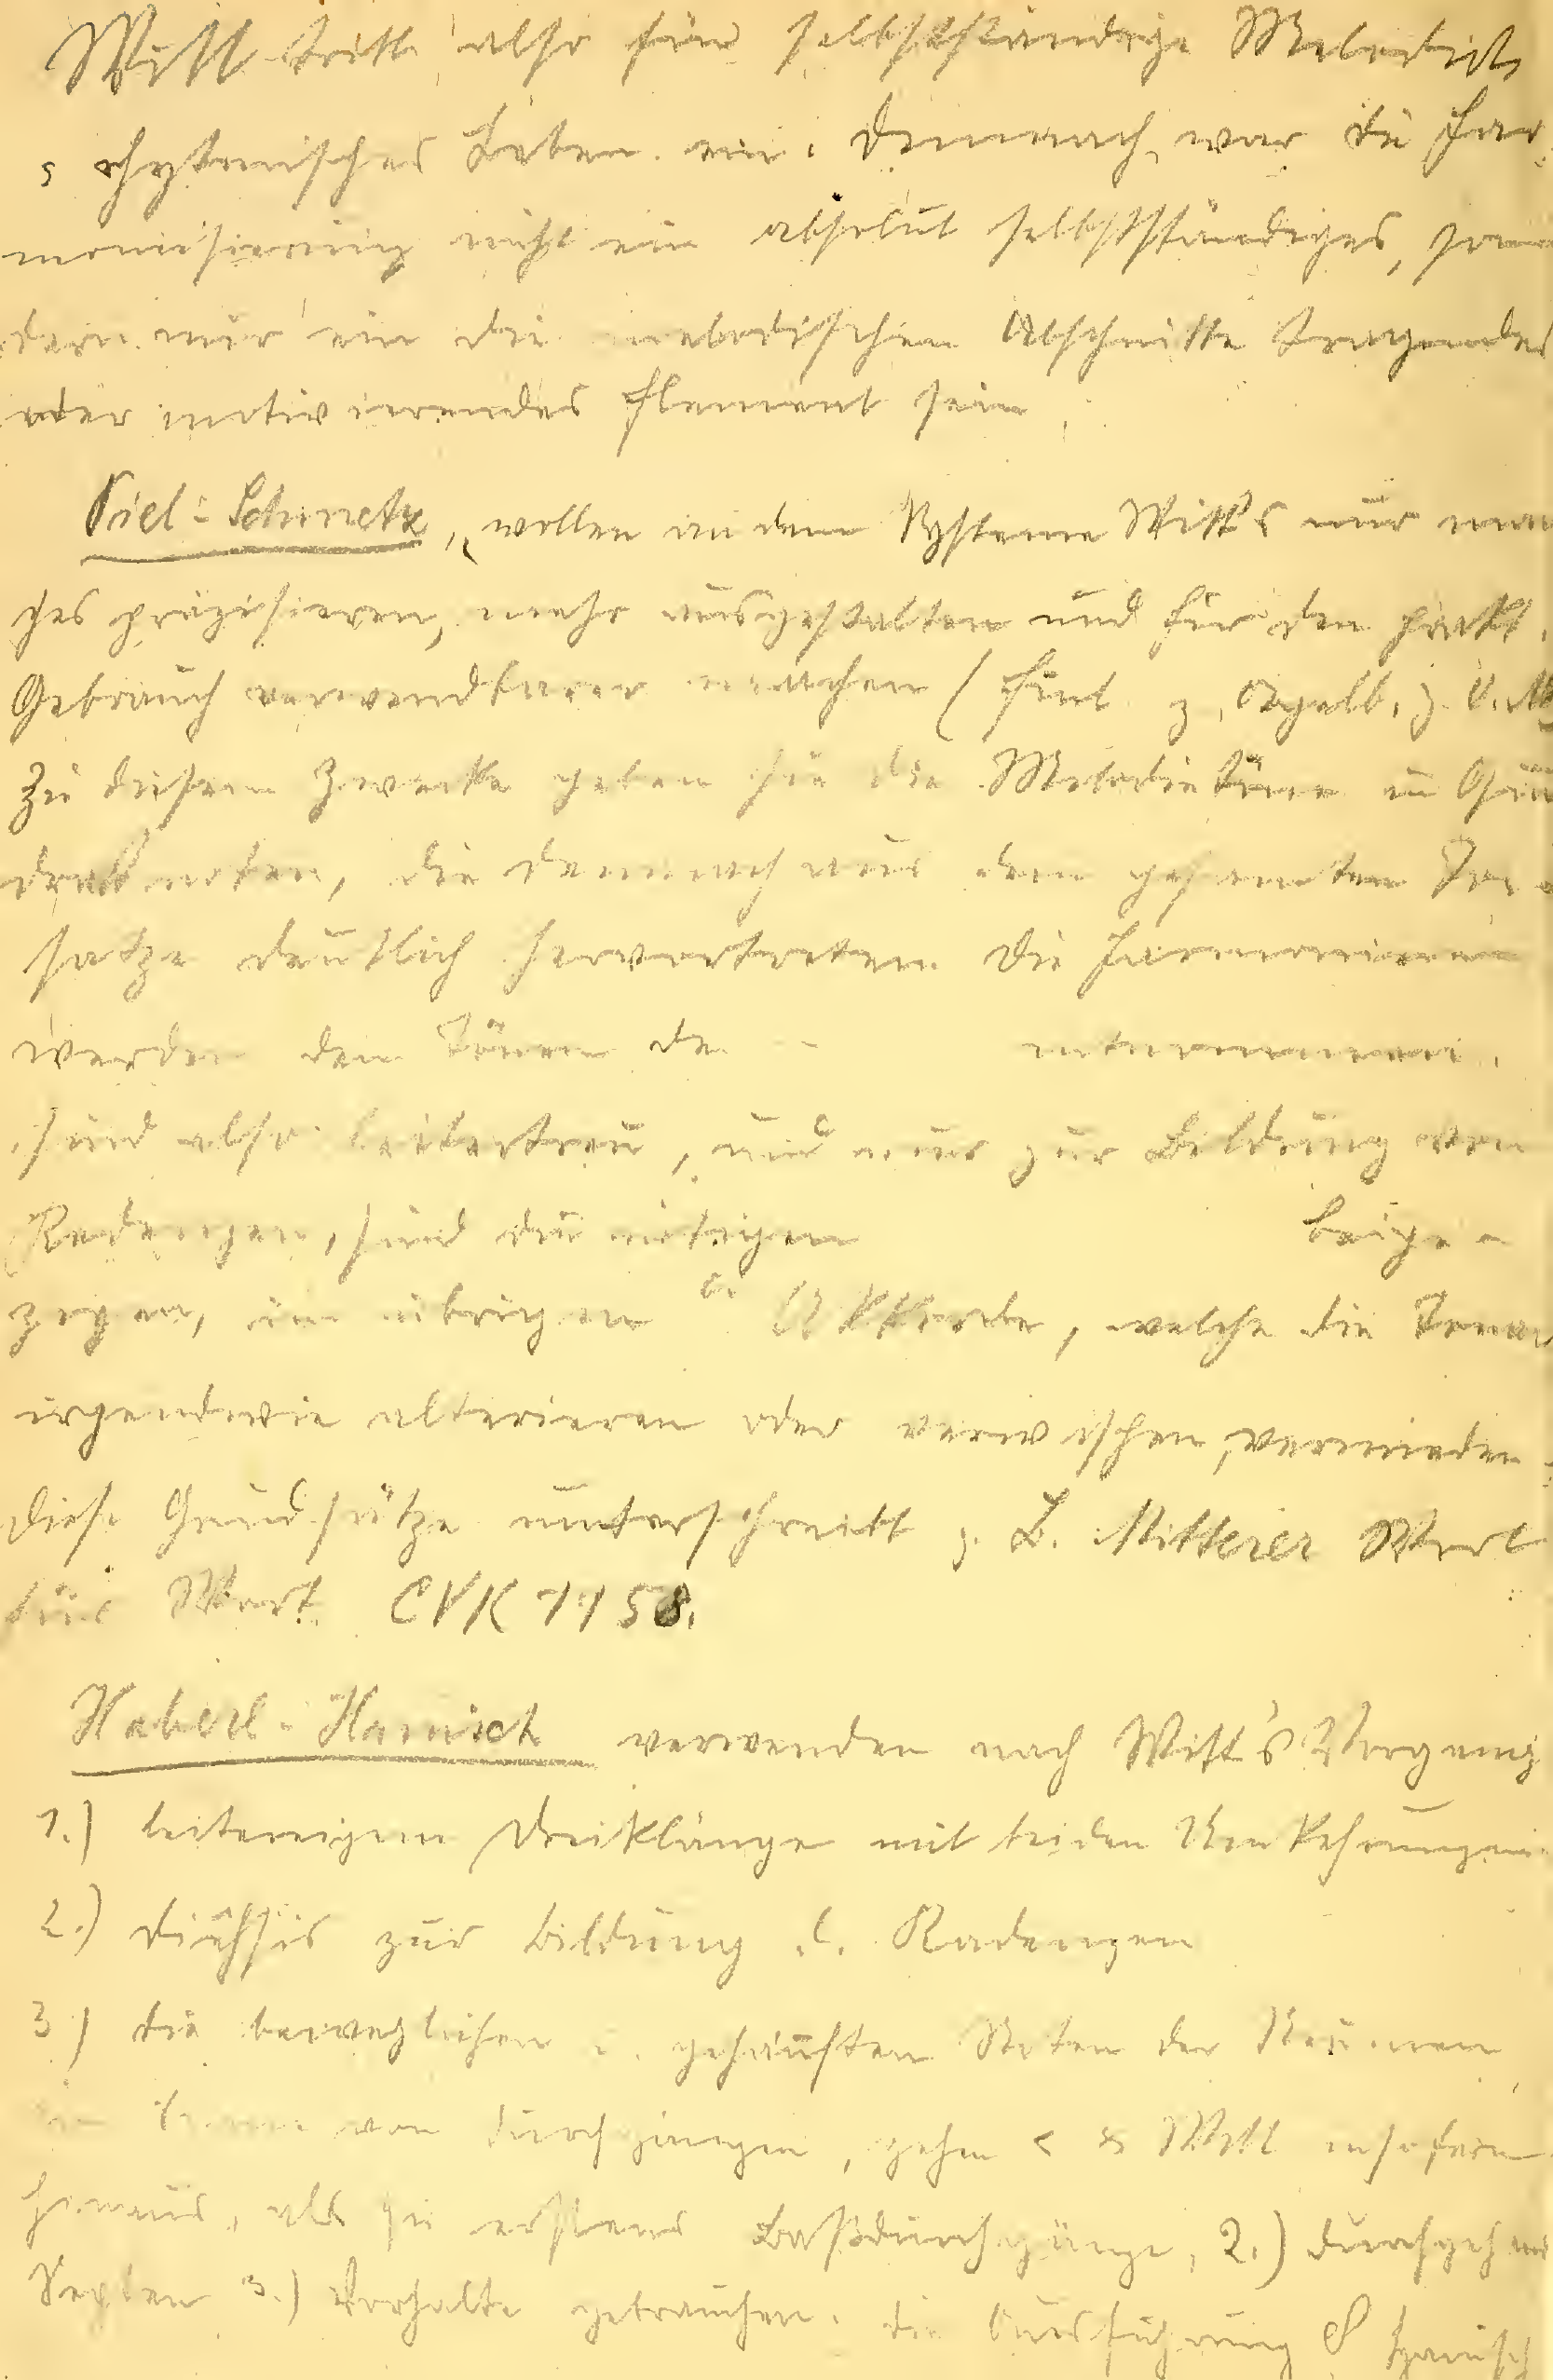 Witt tritt also für selbstständige Melodik
, rhytmisches Leben ein. Demnach war die Har-
monisierung nicht ein absolut selbstständiges, son-
dern nur ein die melodischen Abschnitte tragendes
oder motivierendes Element sein.
Piel-Schmetz, „wollen an dem Systeme Witt's nur man
ches präzisieren, mehr ausgestalten und für den prakt.
Gebrauch verwendbarer machen (Einl. z. Orgelb. z. O. M.
Zu diesem Zwecke geben sie die Melodietöne in
noten, die demnach aus dem gesamten Ton-
satze deutlich hervortreten. Die Harmonieen
werden den Tönen de entnommen,
sind also leitertreu, und nur zur Bildung von
Kadenzen, sind die nötigen beige-
zogen, im übrigen Akkorde, welche die Tonar
irgendwie alterieren oder verwischen, vermieden.
Diese Grundsätze unterschreibt z. B. Mitterer Wort
für Wort CVK 1158.
Haberl-Hanisch verwenden nach Witt's Vorgang
1.) leitereigene Dreiklänge mit beiden Umkehrungen
2.) Diësis zur Bildung d. Kadenzen
3) die beweglichen u. gehäuften Noten der Neumen
von Durchgängen, gehn Witt insofern
hinaus, als sie erstens Baßdurchgänge, 2.) durchgehend
Septen 3.) Vorhalte gebrauchen. Die Ausführung Hanisch